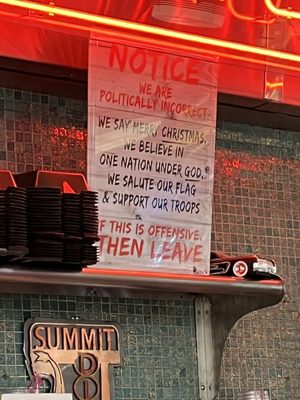 NOTICE
WE ARE
POLITICALLY INCORRECT
WE SAY MERRY CHRISTMAS,
WE BELIEVE IN
ONE NATION UNDER GOD,
WE SALUTE OUR FLAG
& SUPPORT OUR TROOPS
IF THIS IS OFFENSIVE,
THEN LEAVE
SUMMIT